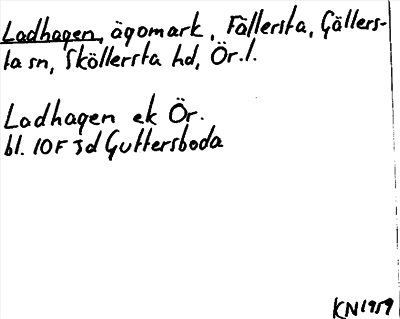 Ladhagen, ägomark, Fällersta, Gällers-
ta sn, Sköllersta hd, Ör. l.
Ladhagen ek Ör.
bl. 10F 3d Guttersboda
KN 1959